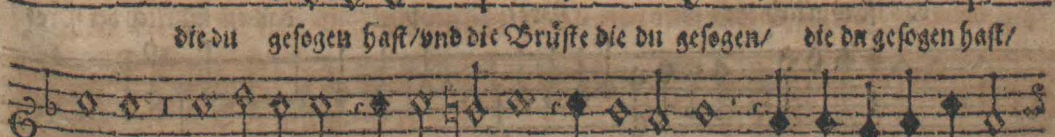 die du gesogen hast/vnd die Brüste die du gesogen/ die du gesogen hast/